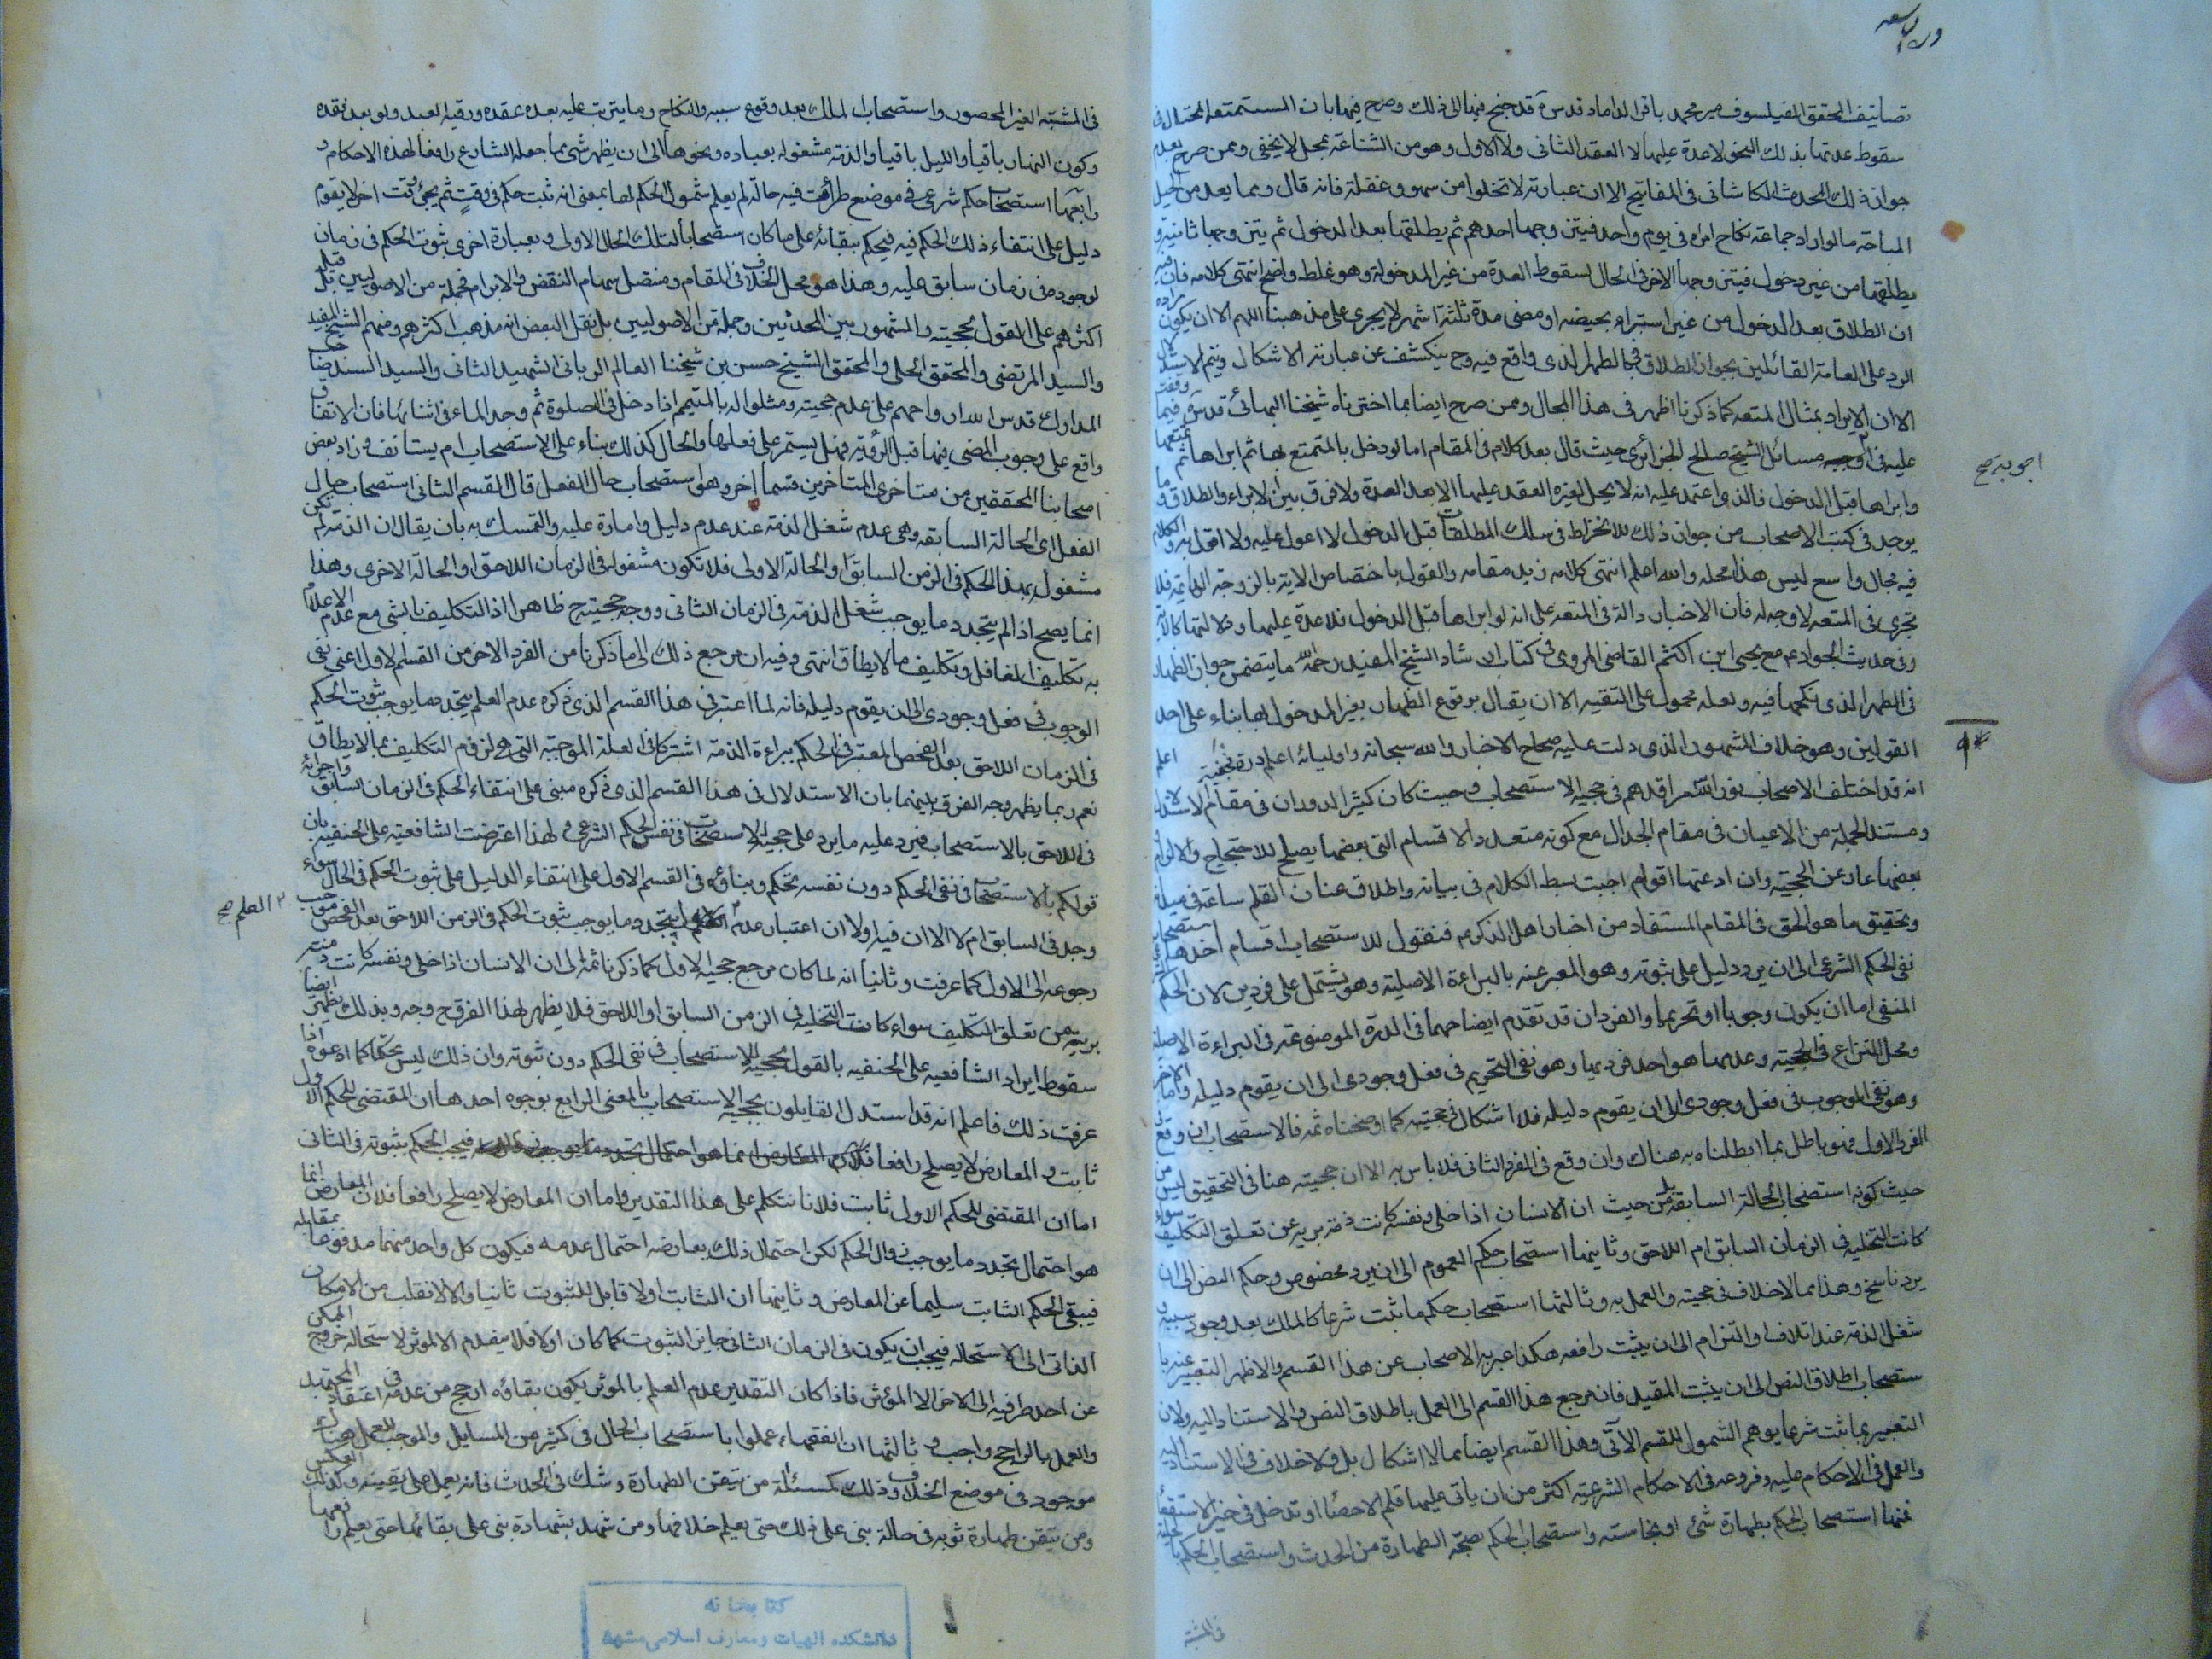 تصانيف المحقق الفيلسوف مير محمد باقر الداماد قدس قد جنح فيها الى ذلك وصرح فيها بان المستمتعه المحتال في
سقوط عدتها بذلك النحو لا عدة عليها لا العقد الثانى ولا الاول وهو من الشناعة بمحل لا يخفى وممن صرح بعدم
جواز ذلك المحدث الكاشانى فى المفاتيح الا ان عبارته لا تخلوا من سهو وغفلة فانه قال ومما يعد من الحيل
المباحة ما لو اراد جماعة نكاح امراه فى يوم واحد فيتزوجها احدهم ثم يطلقها بعد الدخول ثم يتزوجها ثانيه و
يطلقها من غير دخول فيتزوجها الاخر فى الحال لسقوط العدة من غير المدخولة وهو غلط واضح انتهى كلامه فان فيه
ان الطلاق بعد الدخول من غير استبراء بحيضه او مضى مدة ثلثة اشهر لا يجرى على مذهبنا اللهم الا ان يكون مراده
الرد على العامة القائلين بجواز الطلاق فى الطهر الذى واقع فيه وح ينكشف عن عبارته الاشكال ويتم الاستدلال
الا ان الايراد بمثال المتعه كما ذكرنا اظهر فى هذا المجال وممن صرح ايضا بما اخترناه شيخنا البهائى قدس فيما وقفت
عليه فى اجوبة مسائل الشيخ صالح الجزائرى حيث قال بعد كلام فى المقام اما لو دخل بالمتمتع بها ثم ابراها ثم تمتعها
وابراها قبل الدخول فالذى اعتمد عليه انه لا يحل لغيره العقد عليها الا بعد العدة ولا فرق بين الابراء والطلاق وما
يوجد فى كتب الاصحاب من جواز ذلك للانخراط فى سلك المطلقات قبل الدخول لا اعول عليه ولا اقول به والكلام
فيه مجال واسع ليس هذا محله والله اعلم انتهى كلامه زيد مقامه والقول باختصاص الاية بالزوجة الدائمة فلا
تجرى فى المتعه لا وجه له فان الاخبار دالة فى المتعه على انه لو ابراها قبل الدخول فلا عدة عليها ودلالتها كالآية
وفى حديث الجواد ع مع يحيى ابن اكثم القاضى المروى فى كتاب ارشاد الشيخ المفيد رحمه الله ما يتضمن جواز الظهار
فى الطهر الذى نكحها فيه ولعله محمول على التقيه الا ان يقال بوقوع الظهار بغير المدخول بها بناء على احد
القولين وهو خلاف المشهور الذى دلت عليه صحاح الاخبار والله سبحانه واوليائه اعلم درة نجفية اعلم
انه قد اختلف الاصحاب نور الله مراقدهم فى حجية الاستصحاب وحيث كان كثير الدوران فى مقام الاستدلال
ومستند الجملة من الاعيان فى مقام الجدال مع كونه متعدد الاقسام التى بعضها يصلح للاحتجاج والالزام و
بعضها عار عن الحجية وان ادعتها اقوام احببت بسط الكلام فى بيانه واطلاق عنان القلم ساعة فى ميدانه
وتحقيق ما هو الحق فى المقام المستفاد من اخبار اهل الذكر ع فنقول للاستصحاب اقسام احدها استصحاب
نفى الحكم الشرعى الى ان يرد دليل على ثبوته وهو المعبر عنه بالبراءة الاصلية وهو يشتمل على فردين لان الحكم
المنفى اما ان يكون وجوبا او تحريما والفردان قد تقدم ايضاحهما فى الدرة الموضوعة فى البراءة الاصلية
ومحل النزاع فى الحجية وعدمها هو احد فرديها وهو نفى التحريم فى فعل وجودى الى ان يقوم دليله واما الاخر
وهو نفى الوجوب فى فعل وجودى الى ان يقوم دليله فلا اشكال فى حجيته كما اوضحناه ثمه فالاستصحاب ان وقع فى
الفرد الاول فهو باطل بما ابطلناه به هناك وان وقع فى الفرد الثانى فلا باس به الا ان حجيته هنا فى التحقيق ليس من
حيث كونه استصحابا للحالة السابقة بل من حيث ان الانسان اذا خلى ونفسه كانت ذمته برية عن تعلق التكليف سواء
كانت التخلية فى الزمان السابق ام اللاحق وثانيها استصحاب حكم العموم الى ان يرد مخصوص وحكم النص الى ان
يرد ناسخ وهذا مما لا خلاف فى حجيته والعمل به وثالثها استصحاب حكم ما ثبت شرعا كالملك بعد وجود سببه و
شغل الذمة عند اتلاف او التزام الى ان يثبت رافعه هكذا عبر به الاصحاب عن هذا القسم والاظهر التعبير عنه با
ستصحاب اطلاق النص الى ان يثبت المقيد فان مرجع هذا القسم الى العمل باطلاق النص والاستناد اليه ولان
التعبير بما ثبت شرعا يوهم الشمول للقسم الآتى وهذا القسم ايضا مما لا اشكال بل ولا خلاف فى الاستناد اليه
والعمل فى الاحكام عليه وفروعه فى الاحكام الشرعية اكثر من ان ياتى عليها قلم الاحصاء او تدخل فى حيز الاستقصاء
فمنها استصحاب الحكم بطهارة شئ او نجاسته واستصحاب الحكم بصحة الطهارة من الحدث واستصحاب الحكم بالحلية
فى المشتبه
اجوبة صح
فى المشتبه الغير المحصور واستصحاب الملك بعد وقوع سببه والنكاح وما يترتب عليه بعده عقده ورقية العبد ولو بعد فقده
وكون النهار باقيا والليل باقيا والذمة مشغولة بعباده ونحوها الى ان يظهر شئ مما جعله الشارع رافعا لهذه الاحكام و
رابعها استصحاب حكم شرعى فى موضع طرأت فيه حالة لم يعلم شمول الحكم لها بمعنى انه ثبت حكم فى وقت ثم يجئ وقت اخر لا يقوم
دليل على انتفاء ذلك الحكم فيه فيحكم ببقائه على ما كان استصحابا لتلك الحال الاولى وبعبارة اخرى ثبوت الحكم فى زمان
لوجوده فى زمان سابق عليه وهذا هو محل الخلاف فى المقام ومنتصل سهام النقض والابرام فجملة من الاصوليين بل قيل
اكثرهم على القول بحجيته والمشهور بين المحدثين وجملة من الاصوليين بل نقل البعض انه مذهب اكثرهم ومنهم الشيخ المفيد
والسيد المرتضى والمحقق الحلى والمحقق الشيخ حسن بن شيخنا العالم الربانى الشهيد الثانى والسيد السند صاحب
المدارك قدس الله ارواحهم على عدم حجيته ومثلوا له بالمتيمم اذا دخل فى الصلوة ثم وجد الماء فى اثنائها فان الاتفاق
واقع على وجوب المضى فيها قبل الرؤية فهل يستمر على فعلها والحال كذلك بناء على الاستصحاب ام يستانف وزاد بعض
اصحابنا المحققين من متاخرى المتاخرين قسما اخر وهو استصحاب حال الفعل قال القسم الثانى استصحاب حال
الفعل اى الحالة السابقه وهى عدم شغل الذمة عند عدم دليل وامارة عليه والتمسك به بان يقال ان الذمة لم تكن
مشغولة بهذا الحكم فى الزمن السابق او الحالة الاولى فلا تكون مشغولة فى الزمان اللاحق او الحالة الاخرى وهذا
انما يصح اذا لم يتجدد ما يوجب شغل الذمة فى الزمان الثانى ووجه حجيته ح ظاهر اذ التكليف بالشئ مع عدم الاعلام
به تكليف الغافل وتكليف ما لا يطاق انتهى وفيه ان مرجع ذلك الى ما ذكرنا من الفرد الاخر من القسم الاول اعنى نفى
الوجوب فى فعل وجودى الى ان يقوم دليله فانه لما اعتبر فى هذا القسم الذى ذكره عدم العلم بتجدد ما يوجب ثبوت الحكم
فى الزمان اللاحق بعد الفحص المعتبر فى الحكم ببراءة الذمة اشتركا فى العلة الموجبة التى هى لزوم التكليف بما لا يطاق
نعم ربما يظهر وجه الفرق بينهما بان الاستدلال فى هذا القسم الذى ذكره مبنى على انتفاء الحكم فى الزمان السابق واجرائه
فى اللاحق بالاستصحاب فيرد عليه ما يرد على حجية الاستصحاب فى نفس الحكم الشرعى ولهذا اعترضت الشافعية على الحنفيه بان
قولكم بالاستصحاب فى نفى الحكم دون نفسه تحكم وبناؤه فى القسم الاول على انتفاء الدليل على ثبوت الحكم فى الحال سواء
وجد فى السابق ام لا الا ان فيه اولا ان اعتبار عدم العلم بتجدد ما يوجب ثبوت الحكم فى الزمن اللاحق بعد الفحص موجب
رجوعه الى الاول كما عرفت وثانيا انه لما كان مرجع حجية الاول كما ذكرنا ثمة الى ان الانسان اذا خلى ونفسه كانت ذمته
بريئة من تعلق التكليف سواء كانت التخلية فى الزمن السابق او اللاحق فلا يظهر لهذا الفرق ح وجه وبذلك يظهر ايضا
سقوط ايراد الشافعيه على الحنفيه بالقول بحجية الاستصحاب فى نفى الحكم دون ثبوته وان ذلك ليس تحكما كما ادعوه اذا
عرفت ذلك فاعلم انه قد استدل القايلون بحجية الاستصحاب بالمعنى الرابع بوجوه احدها ان المقتضى للحكم الاول
ثابت والمعارض لا يصلح رافعا فيجب الحكم بثبوته فى الثانى
اما ان المقتضى للحكم الاول ثابت فلانا نتكلم على هذا التقدير واما ان المعارض لا يصلح رافعا فلان المعارض انما
هو احتمال تجدد ما يوجب زوال الحكم لكن احتمال ذلك يعارضه احتمال عدمه فيكون كل واحد منهما مدفوعا بمقابله
فيبقى الحكم الثابت سليما عن المعارض وثانيها ان الثابت اولا قابل للثبوت ثانيا والا لانقلب من الامكان
الذاتى الى الاستحالة فيجب ان يكون فى الزمان الثانى جايز الثبوت كما كان اولا فلا ينعدم الا لمؤثر لاستحالة خروج الممكن
عن احد طرفيه الى الاخر الا المؤثر فاذا كان التقدير عدم العلم بالمؤثر يكون بقاؤه ارجح من عدمه فى اعتقاد المجتهد
والعمل بالراجح واجب وثالثها ان الفقهاء عملوا باستصحاب الحال فى كثير من المسايل والموجب للعمل هناك
موجود فى موضع الخلاف وذلك كمسئلة من تيقن الطهارة وشك فى الحدث فانه يعمل على يقينه وكذلك العكس
ومن تيقن طهارة ثوبه فى حالة بنى على ذلك حتى يعلم خلافها ومن شهد بشهادة بنى على بقائها حتى يعلم رافعها
العلم صح
كتابخانه
دانشكده الهيات ومعارف اسلامى مشهد